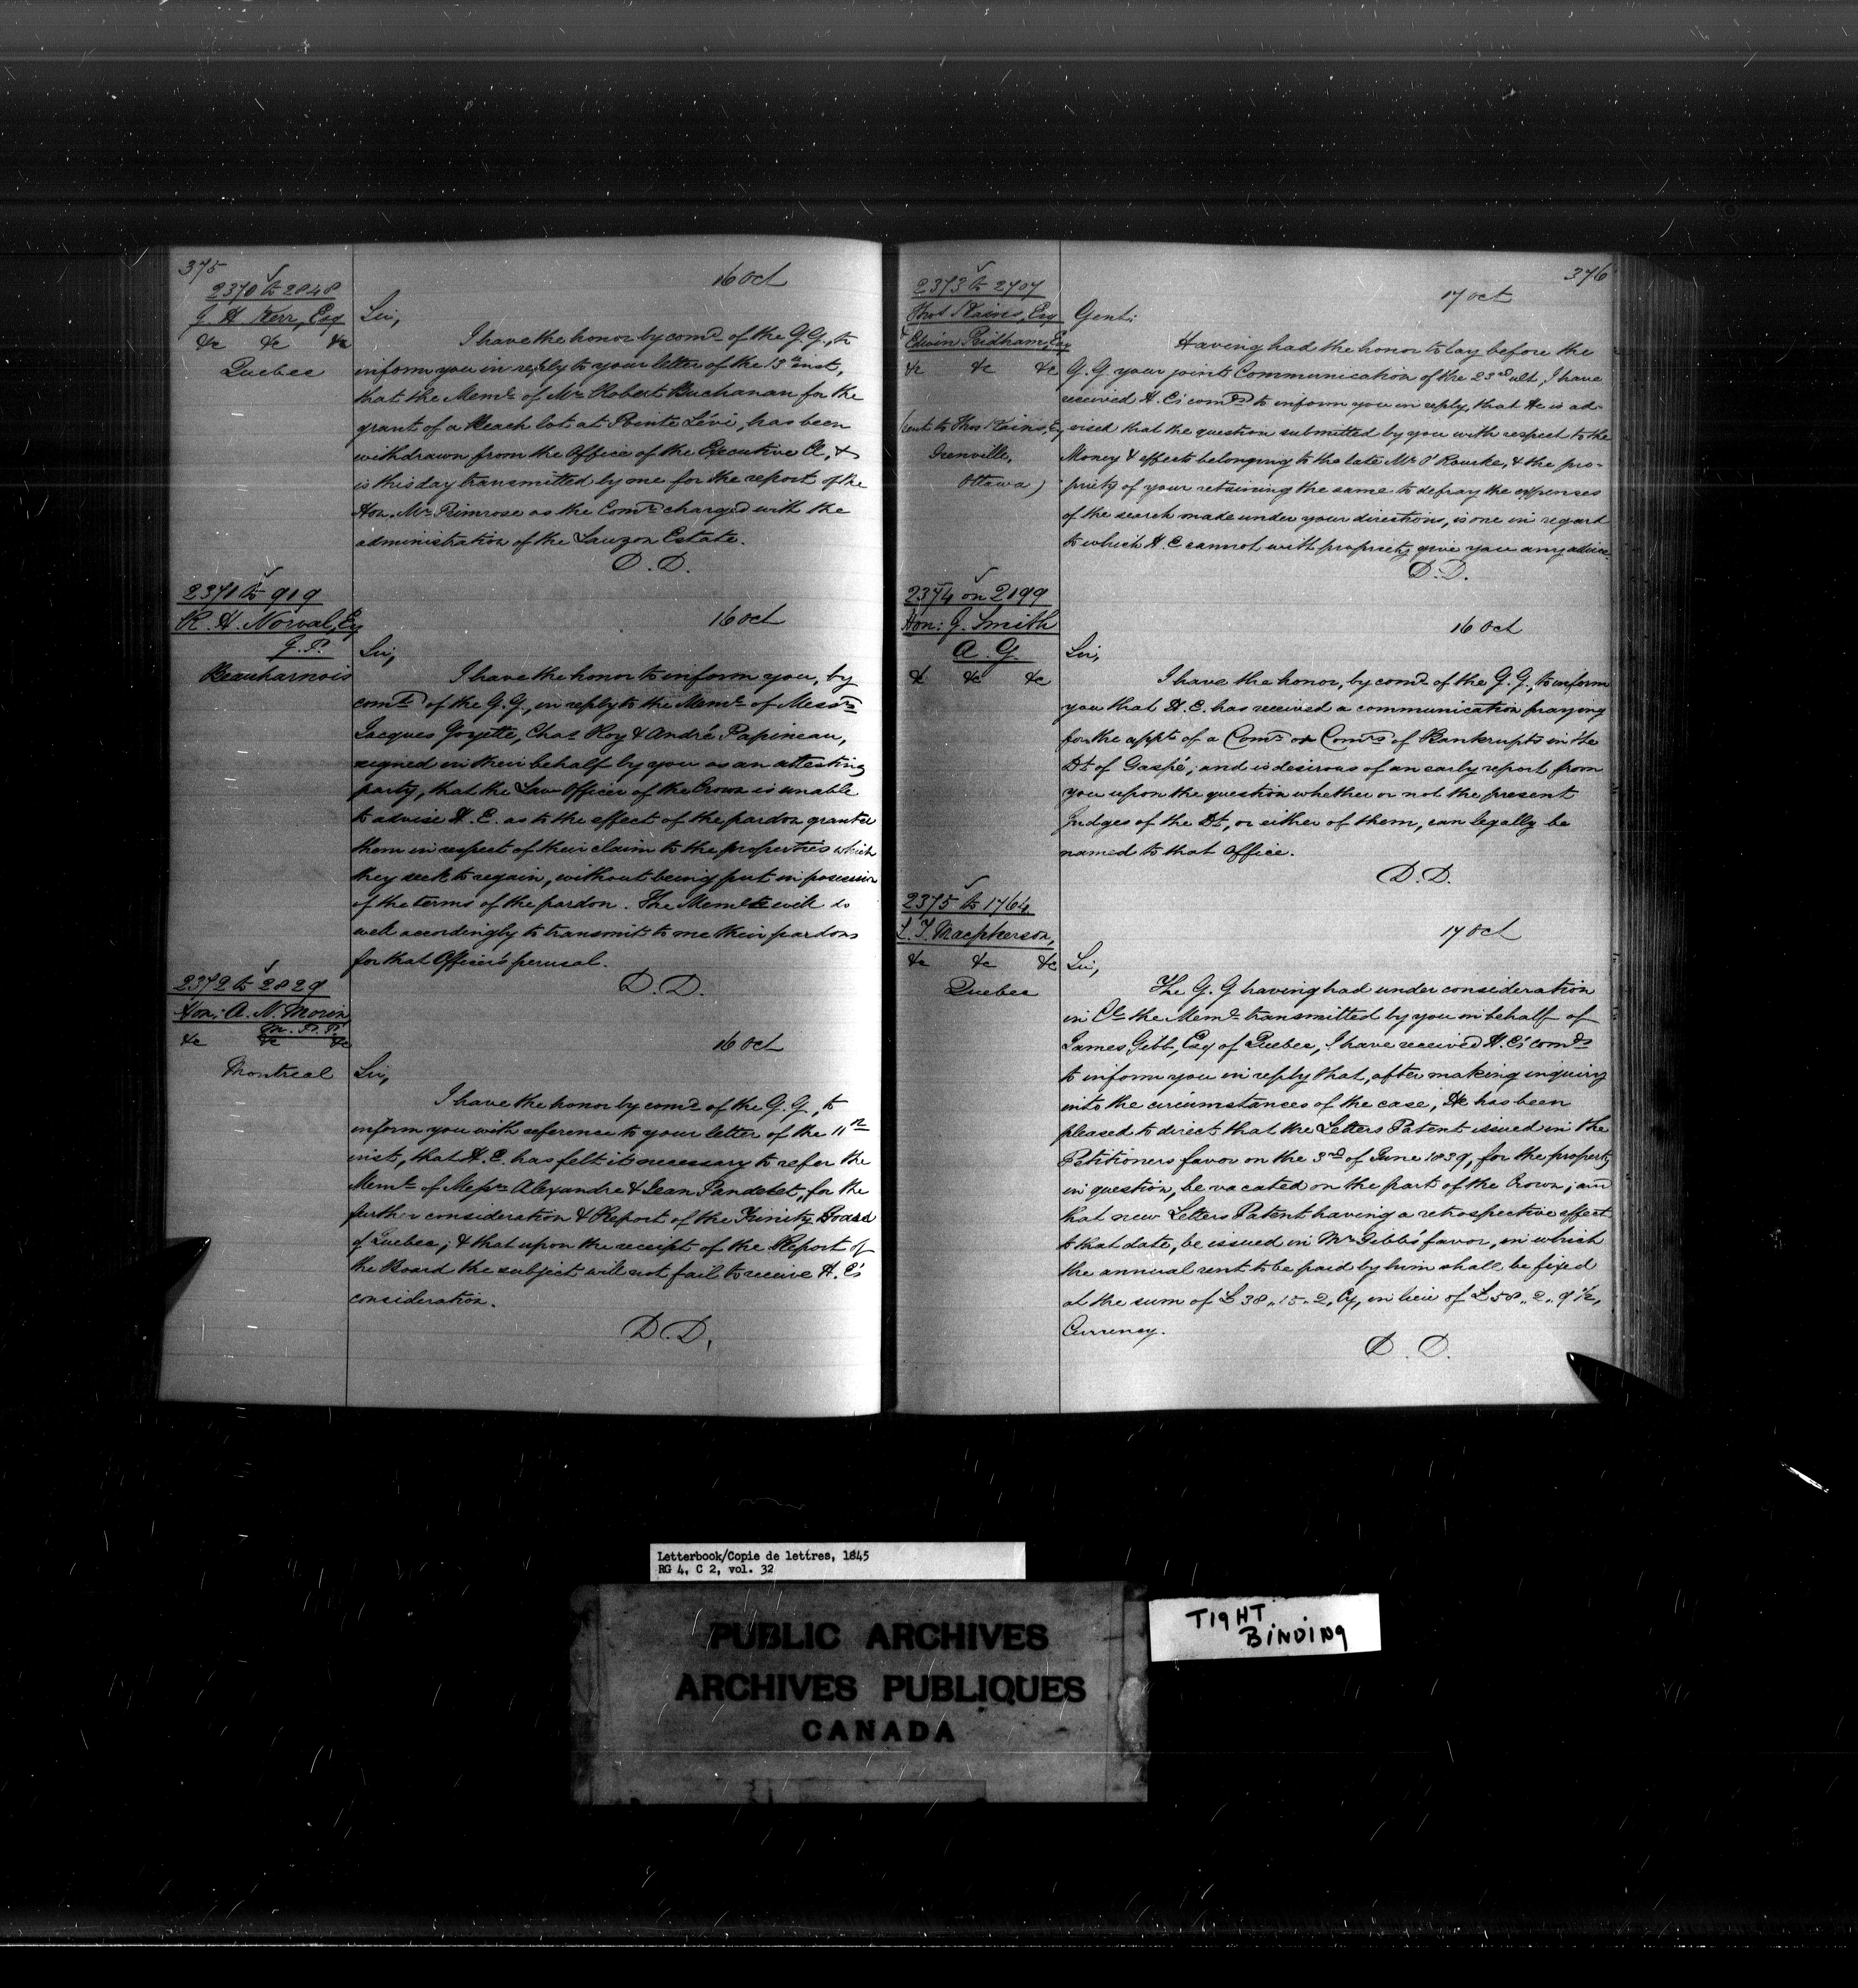 375
16 Oct
2370 to 2848
J. H. Kerr, Esq
&c &c &c
Quebec
Sir,
I have the honor by comd. of the G.G., to
inform you in reply to your letter of the 13th inst,
that the Meml. of Mr. Robert Buchanan for the
grant of a Beach lot at Pointe Lévi, has been
withdrawn from the Office of the Executive Cl, &
is this day transmitted by one for the report of the
Hon. Mr. Primrose as the Comr. charged with the
administration of the Lauzon Estate.
D. D.
2371 to 919
R. H. Norval, Esq
J. P.
Beauharnois
16 Oct
Sir,
I have the honor to inform you, by
comd. of the G.G., in reply to the Meml. of Messrs.
Jacques Goyette, Chas. Roy & André Papineau,
signed in their behalf by you as an attesting
party, that the Law Officer of the Crown is unable
to advise H. E. as to the effect of the pardon granted
them in respect of their claim to the properties which
they seek to regain, without being put in possession
of the terms of the pardon. The Memlts will do
well accordingly to transmit to me their pardons
for that Officer's perusal.
D. D.
2372 to 2829
Hon: A. N. Morin
M.P.P.
&c &c &c
Montreal
16 Oct
Sir,
I have the honor by comd. of the G.G., to
inform you with reference to your letter of the 11th
inst, that H. E. has felt it necessary to refer the
Meml. of Messrs Alexandre & Jean Pandelet, for the
further consideration & Report of the Trinity Board
of Quebec; & that upon the receipt of the Report of
the Board the subject will not fail to receive H. E's
consideration.
D. D.
376
17 Oct
2373 to 2707
Thos Kains, Esq
Edwin Pridham, Esq
&c &c &c
(sent to Thos Kains, Esq
Grenville,
Ottawa)
Gent:
Having had the honor to lay before the
G. G. your joint Communication of the 23rd ult, I have
received H. E's comds to inform you in reply, that He is ad-
vised that the question submitted by you with respect to the
Money & effects belonging to the late Mr. O'Rourke, & the pro-
priety of your retaining the same to defray the expenses
of the search made under your directions, is one in regard
to which H. E cannot with propriety give you any advice.
D. D.
2374 on 2199
Hon: J. Smith
A. G.
& &c &c
16 Oct
Sir,
I have the honor, by comd. of the G. G., to inform
you that H. E. has received a communication praying
for the appt. of a Comr. or Comrs of Bankrupts in the
Dt. of Gaspé; and is desirous of an early report from
you upon the question whether or not the present
Judges of the Dt., or either of them, can legally be
named to that Office.
D. D.
2375 to 1764
L. T. Macpherson,
&c &c &c
Quebec
17 Oct
Sir,
The G. G having had under consideration
in Cl. the Meml. transmitted by you in behalf of
James Gibb, Esq of Quebec, I have received H. E's comds
to inform you in reply that, after making inquiry
into the circumstances of the case, He has been
pleased to direct that the Letters Patent issued in the
Petitioners favor on the 3rd of June 1839, for the property
in question, be vacated on the part of the Crown; and
that new Letters Patent having a retrospective effect
to that date, be issued in Mr. Gibb's favor, in which
the annual rent to be paid by him shall be fixed
at the sum of £38,,15,,2, Cy, in lieu of £58,,2,,9½,
Currency.
D. D.
Letterbook/Copie de lettres, 1845
RG 4, C 2, vol. 32
PUBLIC ARCHIVES
ARCHIVES PUBLIQUES
CANADA
TIGHT
BINDING